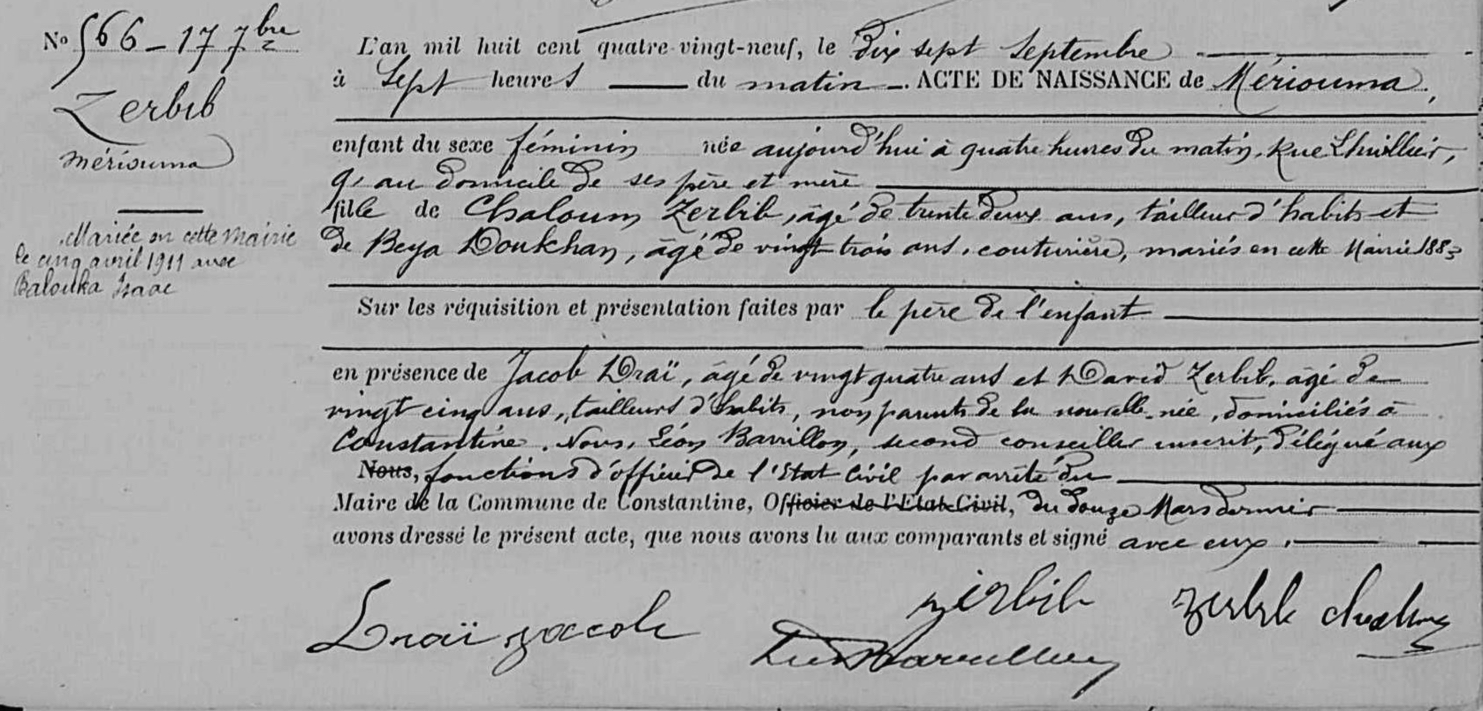 No 566 - 17 7bre
Zerbib
Mériouma
Mariée en cette Mairie
le cinq avril 1911 avec
Balouka Isaac
L'an mil huit cent quatre-vingt-neuf, le dix sept Septembre
à Sept heures du matin. ACTE DE NAISSANCE de Mériouma,
enfant du sexe féminin née aujourd'hui à quatre heures du matin, Rue Lhuillier,
9, au domicile de ses père et mère
fille de Chaloum Zerbib, âgé de trente deux ans, tailleur d'habits et
de Beya Doukhan, âgé de vingt trois ans, couturière, mariés en cette Mairie 1883
Sur les réquisition et présentation faites par le père de l'enfant
en présence de Jacob Draï, âgé de vingt quatre ans et David Zerbib, âgé de
vingt cinq ans, tailleurs d'habits, non parents de la nouvelle née, domiciliés à
Constantine. Nous, Léon Barrillon, second conseiller inscrit, délégué aux
Nous, fonctions d'officier de l'Etat Civil par arrêté du
Maire de la Commune de Constantine, Officier de l'Etat Civil, du douze Mars dernier
avons dressé le présent acte, que nous avons lu aux comparants et signé avec eux.
Draï Jacob
Zerbib
Zerbib